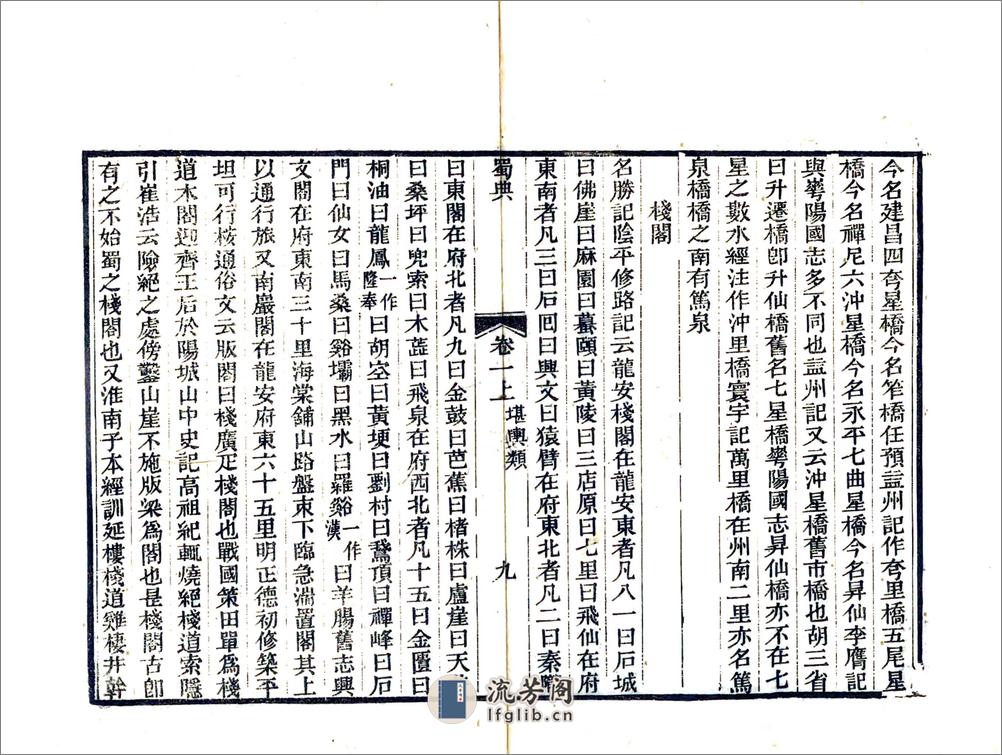 今名建昌四夸星橋今名笮橋任預益州記作夸里橋五尾星
橋今名禪尼六沖星橋今名永平七曲星橋今名昇仙李膺記
與華陽國志多不同也益州記又云沖星橋舊市橋也胡三省
曰升遷橋卽升仙橋舊名七星橋華陽國志昇仙橋亦不在七
星之數水經注作沖里橋寰宇記萬里橋在州南二里亦名篤
泉橋橋之南有篤泉
棧閣
名勝記陰平修路記云龍安棧閣在龍安東者凡八一曰石城
曰佛崖曰麻園曰蟇頤曰黃陵曰三店原曰七里曰飛仙在府
東南者凡三曰石回曰興文曰猿臂在府東北者凡二曰秦隴
蜀典
卷一上
堪輿類
九
曰東閣在府北者凡九曰金鼓曰芭蕉曰楮株曰盧崖曰天
曰桑坪曰兜索曰木蓏曰飛泉在府西北者凡十五曰金匱曰
桐油曰龍鳳一作隆奉曰胡空曰黃埂曰劉村曰鵞頂曰禪峰曰石
門曰仙女曰馬桑曰谿壩曰黑水曰羅谿一作漢曰羊腸舊志興
文閣在府東南三十里海棠鋪山路盤束下臨急湍置閣其上
以通行旅又南巖閣在龍安府東六十五里明正德初修築平
坦可行桉通俗文云版閣曰棧廣疋棧閣也戰國策田單爲棧
道木閣迎齊王后於陽城山中史記高祖紀輒燒絕棧道索隱
引崔浩云險絕之處傍鑿山崖不施版梁爲閣也是棧閣古卽
有之不始蜀之棧閣也又淮南子本經訓延樓棧道雞棲井幹
流芳閣
lfglib.cn